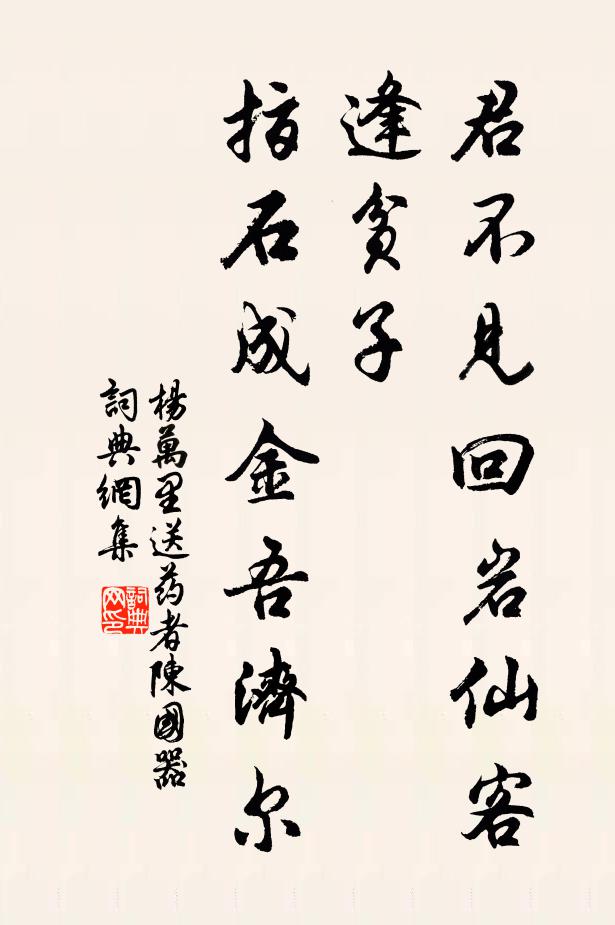 君不见回岩仙客
逢贫子
指石成金吾濟尔
楊萬里送药者陳國器
詞典網集
詞典网印